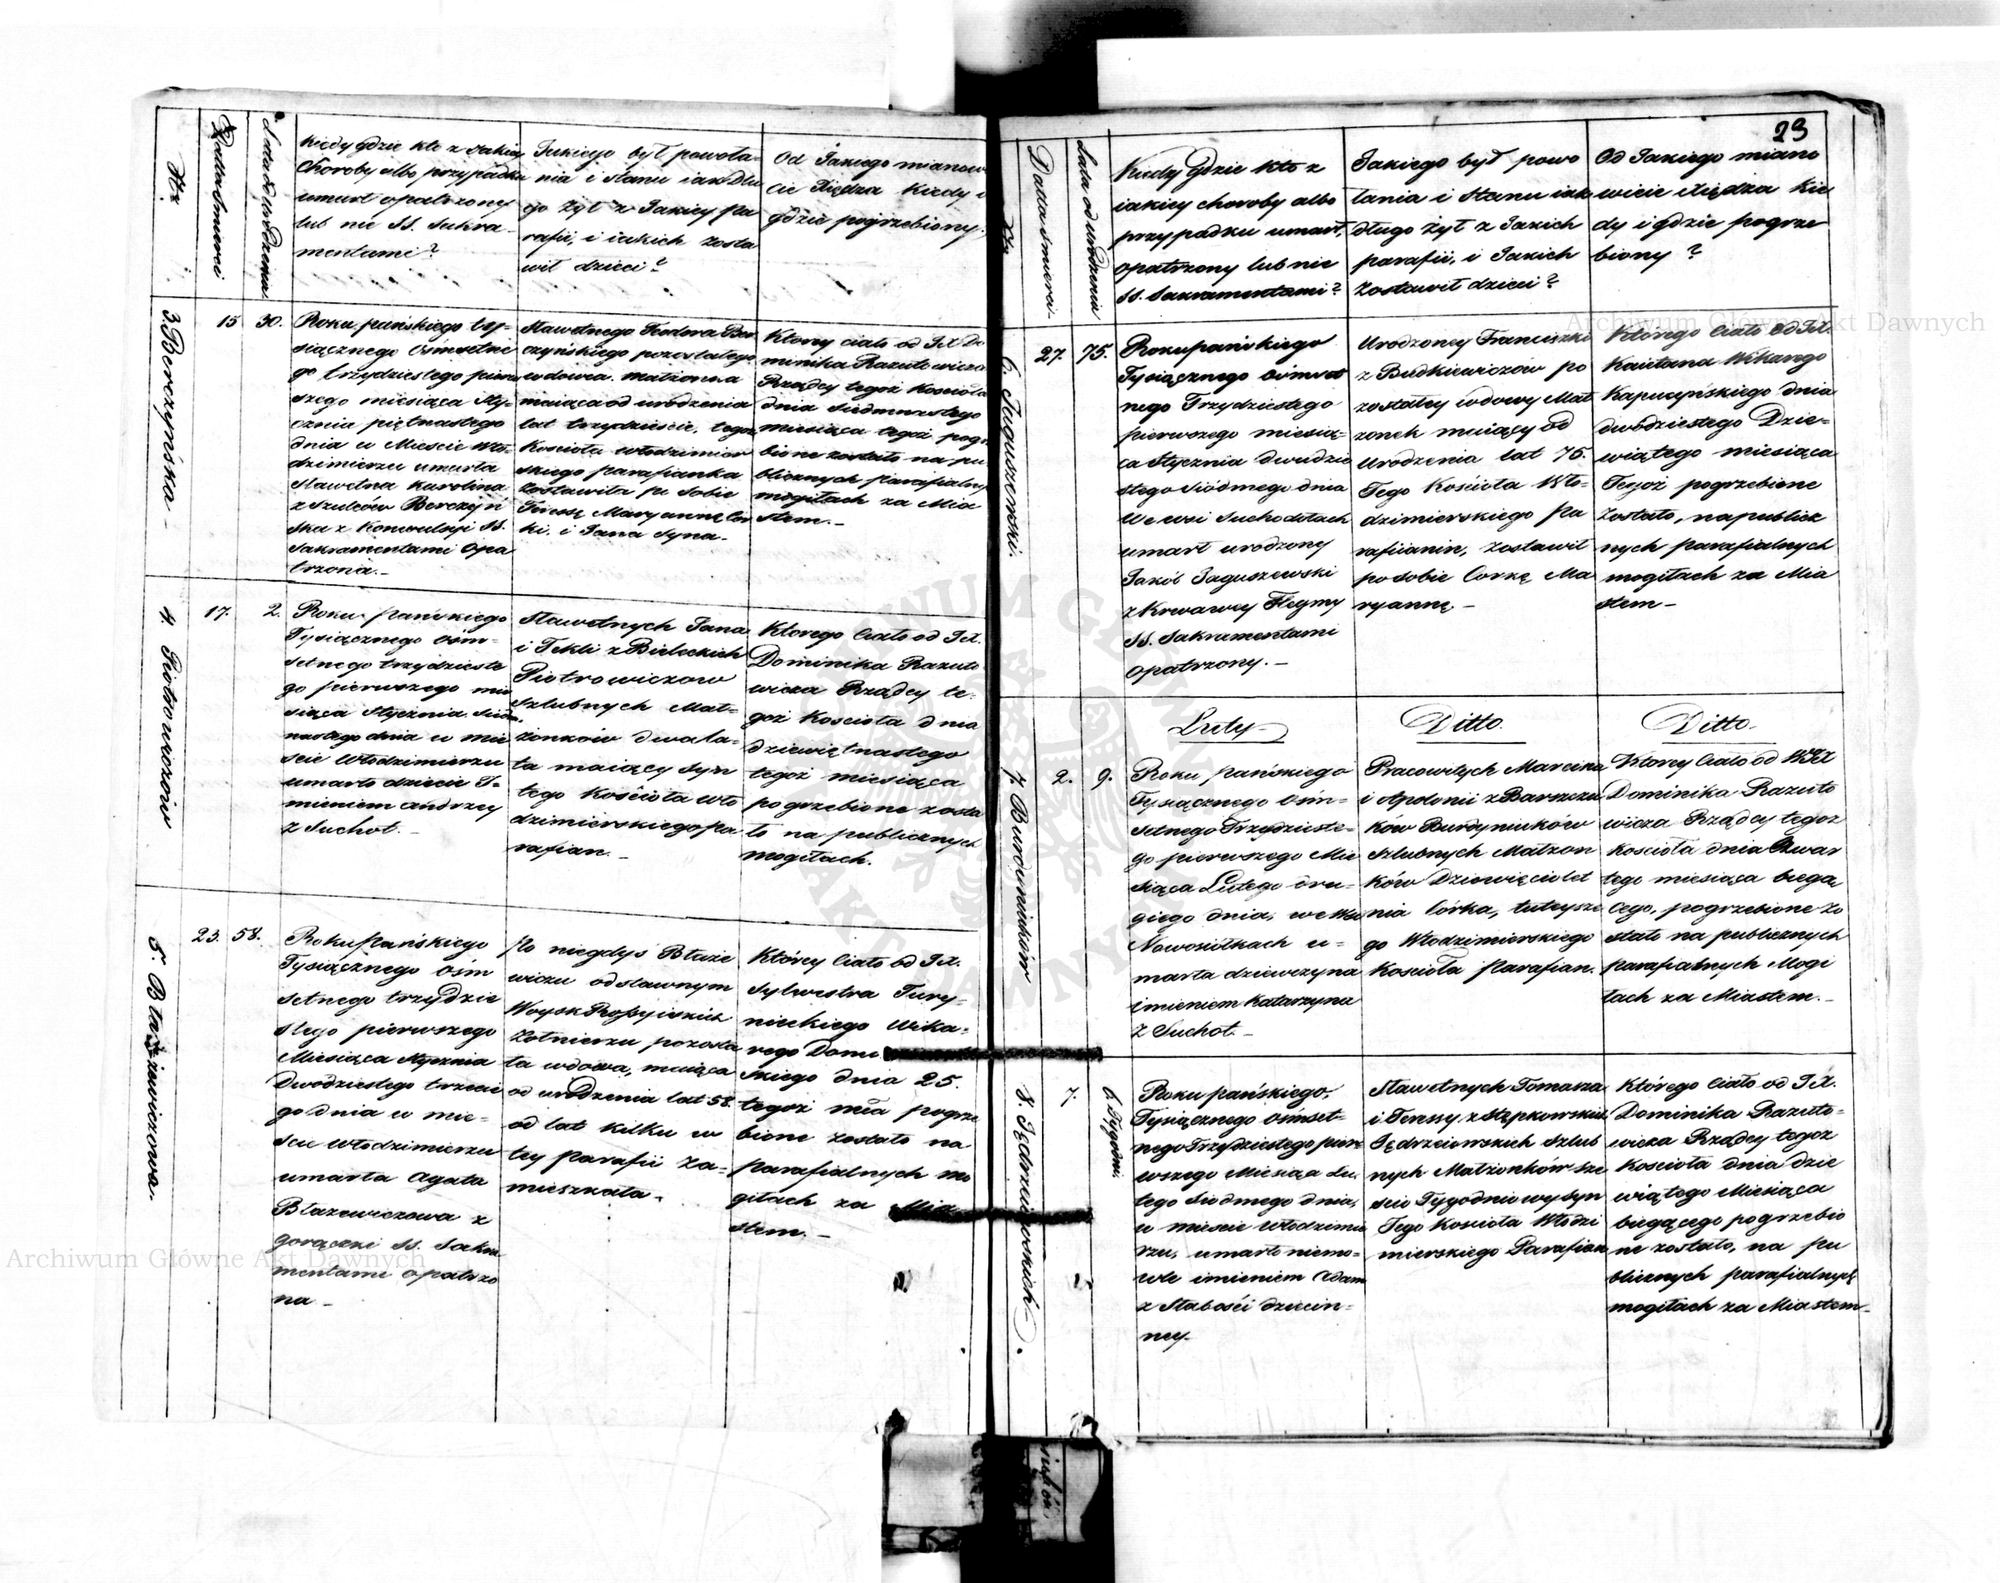 Nr
Datta Smierci
Lata od urodzenia
Kiedy gdzie kto z iakiey
Choroby albo przypadku
umarł opatrzony
lub nie SS. Sakra-
mentami?
Jakiego był powoła-
nia i stanu iak dłu
go żył z Jakiey pa
rafii, i iakich zosta
wił dzieci?
Od Jakiego mianow
cie Xiędza Kiedy i
gdzie pogrzebiony.
3. Berczyńska
15
30.
Roku pańskiego ty-
siącznego Ośmsetne
go trzydziestego pierw
szego miesiąca Sty-
cznia piętnastego
dnia w Mieście Wło-
dzimierzu umarła
Sławetna Karolina
z Szulców Berczyń
ska z Konwulsyi SS.
Sakramentami Opa
trzona.-
Sławetnego Teodora Ber
czyńskiego pozostałego
wdowca. małżonka
maiąca od urodzenia
lat trzydzieście, tegoż
Kościoła włodzimier
skiego parafianka
Zostawiła po sobie
Teressę Maryannę Cor
ki. i Jana syna.-
Ktorey ciało od JX Do
minika Razutowicza
Rządcy tegoż Kościoła
dnia Siedmnastego
miesiąca tegoż pogrz
bione zostało na pu
blicznych parafialny
mogiłach za Mia
stem.-
4 Piotrowiczów
17.
2.
Roku Pańskiego
Tysiącznego Ośm-
setnego trzydzieste
go pierwszego mie
siąca Stycznia Siedm
nastego dnia w mie
ście Włodzimierzu
umarło dziecie I-
mieniem Andrzey
z Suchot.-
Sławetnych Jana
i Tekli z Bieleckich
Piotrowiczow
szlubnych Mał-
żonków dwa la-
ta maiący syn
tego Kościoła Wło
dzimierskiego pa
rafian.-
Ktorego Ciało od JX.
Dominika Razuto
wicza Rządcy te-
goż Kosciola dnia
dziewiętnastego
tegoż miesiąca
pogrzebione zosta
ło na publicznych
mogiłach.
5. Błażewiczowa.
23.
58.
Roku Pańskiego
Tysiącznego Ośm
setnego trzydzie
stego pierwszego
Miesiąca Stycznia
Dwodziestego trzecie
go dnia w mie-
scie Włodzimierzu
umarła Agata
Błazewiczowa z
gorączki SS. Sakra
mentami opatrzo
na.-
Po niegdyś Błaże
wiczu odstawnym
Woysk Rossyiskich
Żołnierzu pozosta
ła wdowa, maiąca
od urodzenia lat 58.
od lat kilku w
tey parafii Za-
mieszkała.-
Ktòrey Ciało od JX.
Sylwestra Tury-
nieckiego Wika-
rego Domi
skiego dnia 25.
tegoż mca pogrze
bione zostało na
parafialnych mo
giłach za Mia
stem.-
23
Nr
Datta śmierci.
Lata od urodzenia
Kiedy Gdzie kto z
iakiey choroby albo
przypadku umarł,
opatrzony lub nie
SS. Sakramentami?
Jakiego był powo
łania i Stanu iak
długo żył z Jakich
parafii, i Jakich
zostawił dzieci?
Od Jakiego miano
wicie Xiędza Kie
dy i gdzie pogrze
biony?
6. Jaguszewski.
27.
75.
Roku pańskiego
Tysiącznego Ośmset
nego Trzydziestego
pierwszego miesią-
ca Stycznia dwudzie
stego siódmego dnia
We wsi Suchodołach
umarł urodzony
Jakób Jaguszewski
z Krwawey Flegmy
SS. Sakramentami
opatrzony.-
Urodzoney Franciszki
z Budkiewiczów po
zostałey wdowy Mał
zonek maiący od
Urodzenia lat 75.
Tego Kościoła Wło-
dzimierskiego Pa
rafianin, zostawił
po sobie Corkę Ma
ryannę.-
Którego Ciało od JX.
Kaietana Wikarego
Kapucyńskiego dnia
dwódziestego Dzie-
wiątego miesiąca
Tegoż pogrzebione
zostało, na publicz
nych parafialnych
mogiłach za Mia
stem-
Luty
Ditto.
Ditto.
7. Burdyniuków
2.
9.
Roku pańskiego
Tysiącznego Ośm-
setnego Trzydzieste-
go pierwszego Mie
siąca Lutego dru-
giego dnia, we wsi
Nowosiółkach u-
marła dziewczyna
imieniem Katarzyna
z Suchot.-
Pracowitych Marcina
i Apolonii z Barszczu
ków Burdyniuków
szlubnych Małżon
ków Dziewięciolet
nia Córka, tuteysze
go Włodzimierskiego
Kościoła Parafian.
Ktorey Ciało od WJX
Dominika Razuto
wicza Rządcy tegoz
Kościoła dnia Czwar
tego miesiąca biegą
cego, pogrzebione zo
stało na publicznych
parafialnych Mogi
łach za Miastem.-
8. Jędrzeiowskich.
7.
6 Tygodni
Roku pańskiego,
Tysiącznego Ośmset-
nego Trzydziestego pier
wszego Miesiąca Lu
tego Siodmego dnia,
w mieście Włodzimie
rzu, umarło niemo-
wle imieniem Adam
z Słabości dziecin-
ney.
Sławetnych Tomasza
i Teressy z Stępkowskich
Jędrzeiowskich szlub
nych Małżonków sze
ścio Tygodniowy syn
Tego Kościoła Włodzi
mierskiego Parafian
Którego Ciało od JX.
Dominika Razuto-
wicza Rządcy tegoz
Kościoła dnia dzie
wiątego Miesiąca
biegącego pogrzebio
ne zostało, na pu
blicznych parafialnych
mogiłach za Miastem-
Archiwum Główne Akt Dawnych
Archiwum Główne Akt Dawnych